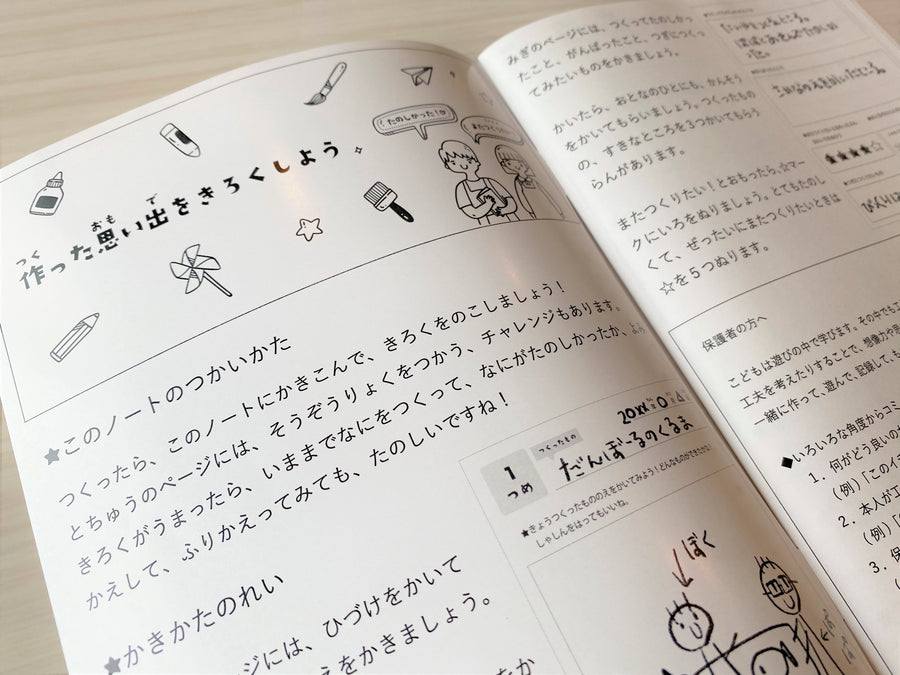 たのしかった!
またつくりたい
作った思い出をきろくしよう
つく
おも
で
★このノートのつかいかた
つくったら、このノートにかきこんで、きろくをのこしましょう!
とちゅうのページには、そうぞうりょくをつかう、チャレンジもあります。
きろくがうまったら、いままでなにをつくって、なにがたのしかったか、よみ
かえして、ふりかえってみても、たのしいですね!
★かきかたのれい
ジには、ひづけをかいて
えをかきましょう。
をか
1
つめ
つくったもの
20xx年0月△
だんぼーるのくるま
★きょうつくったもののえをかいてみよう!どんなものができたかな?
しゃしんをはってもいいね。
ぼく
みぎのページには、つくってたのしかっ
たこと、がんばったこと、つぎにつくっ
てみたいものをかきましょう。
かいたら、おとなのひとにも、かんそう
をかいてもらいましょう。つくったもの
の、すきなところを3つかいてもらう
らんがあります。
またつくりたい!とおもったら、☆マー
クにいろをぬりましょう。とてもたのし
くて、ぜったいにまたつくりたいときは
☆を5つぬります。
★★★★☆
保護者の方へ
こどもは遊びの中で学びます。その中でも工
工夫を考えたりすることで、想像力や思
一緒に作って、遊んで、記録して、も
◆いろいろな角度からコミ
1. 何がどう良いのか
(例)「このイ
2. 本人が工
(例)「
3. 保